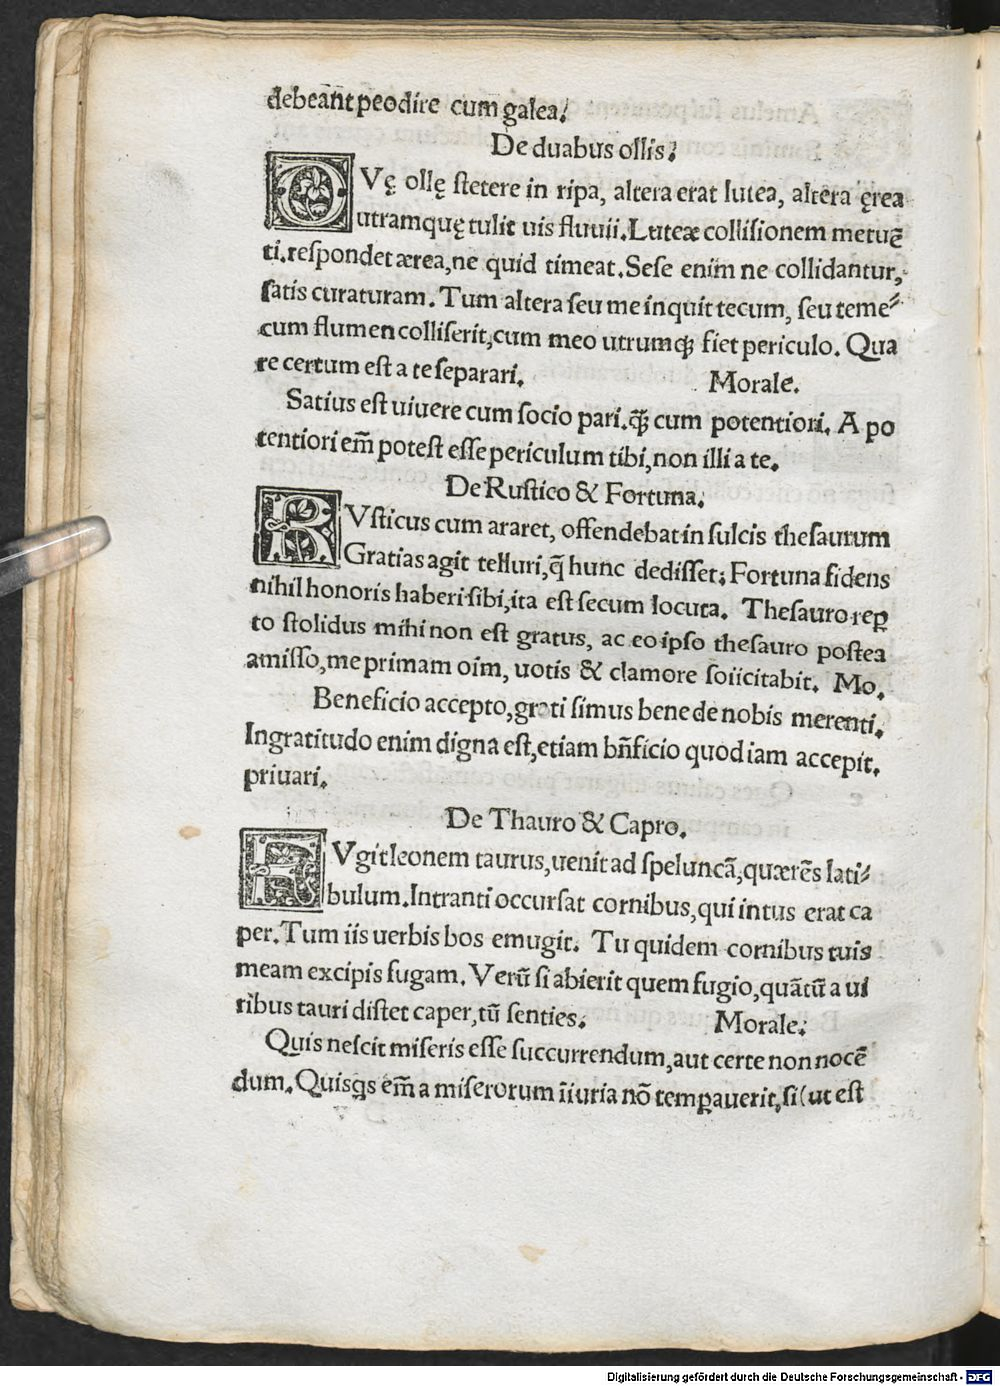 debeānt peodire cum galea.
De duabus ollis.
DVę ollę ſtetere in ripa, altera erat lutea, altera ęrea
utramquę tulit uis fluuii. Luteæ colliſionem metuē
ti. reſpondet ærea, ne quid timeat. Seſe enim ne collidantur,
ſatis curaturam. Tum altera ſeu me inquit tecum, ſeu teme⸗
cum flumen colliſerit, cum meo utrumqꝫ fiet periculo. Qua
re certum eſt a te ſeparari. Morale.
Satius eſt uiuere cum ſocio pari. qꝫ̄ cum potentiori. A po
tentiori em̄ poteſt eſſe periculum tibi, non illi a te.
De Ruſtico & Fortuna.
RVſticus cum araret, offendebat in ſulcis theſaurum
Gratias agit telluri, q̄ hunc dediſſet; Fortuna fidens
nihil honoris haberi ſibi, ita eſt ſecum locuta. Theſauro reꝑ
to ſtolidus mihi non eſt gratus, ac eo ipſo theſauro poſtea
amiſſo, me primam oim, uotis & clamore ſoiicitabit. Mo.
Beneficio accepto, grati ſimus bene de nobis merenti.
Ingratitudo enim digna eſt, etiam bn̄ficio quod iam accepit.
priuari.
De Thauro & Capro.
FVgit leonem taurus, uenit ad ſpeluncā, quærēs lati⸗
bulum. Intranti occurſat cornibus, qui intus erat ca
per. Tum iis uerbis bos emugit. Tu quidem cornibus tuis
meam excipis fugam. Verū ſi abierit quem fugio, quātū a ui
ribus tauri diſtet caper, tū ſenties. Morale.
Quis neſcit miſeris eſſe ſuccurrendum, aut certe non nocē
dum. Quisqs em̄ a miſerorum īiuria nō temꝑauerit, ſi (ut eſt
Digitalisierung gefördert durch die Deutsche Forschungsgemeinschaft - DFG